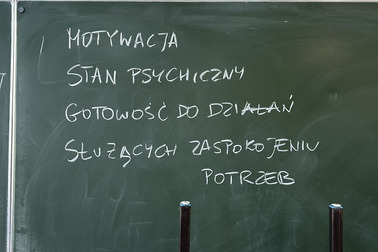 MOTYWACJA
STAN PSYCHICZNY
GOTOWOŚĆ DO DZIAŁAŃ
SŁUŻĄCYCH ZASPOKOJENIU
POTRZEB